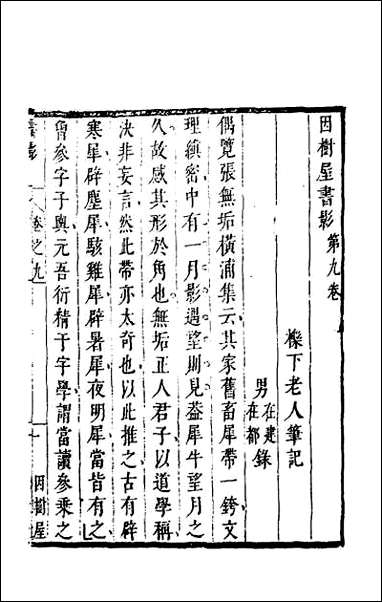 因樹屋書影第九卷
櫟下老人筆記
男在建在都錄
偶覽張無垢橫浦集云其家舊畜犀帶一銙文
理縝密中有一月影遇望則見葢犀牛望月之
久故感其形於角也無垢正人君子以道學稱
决非妄言然此帶亦太奇也以此推之古有辟
寒犀辟塵犀駭雞犀辟暑犀夜明犀當皆有之
曾參字子輿元吾衍精于字學謂當讀參乘之
卷之九
一
因樹屋